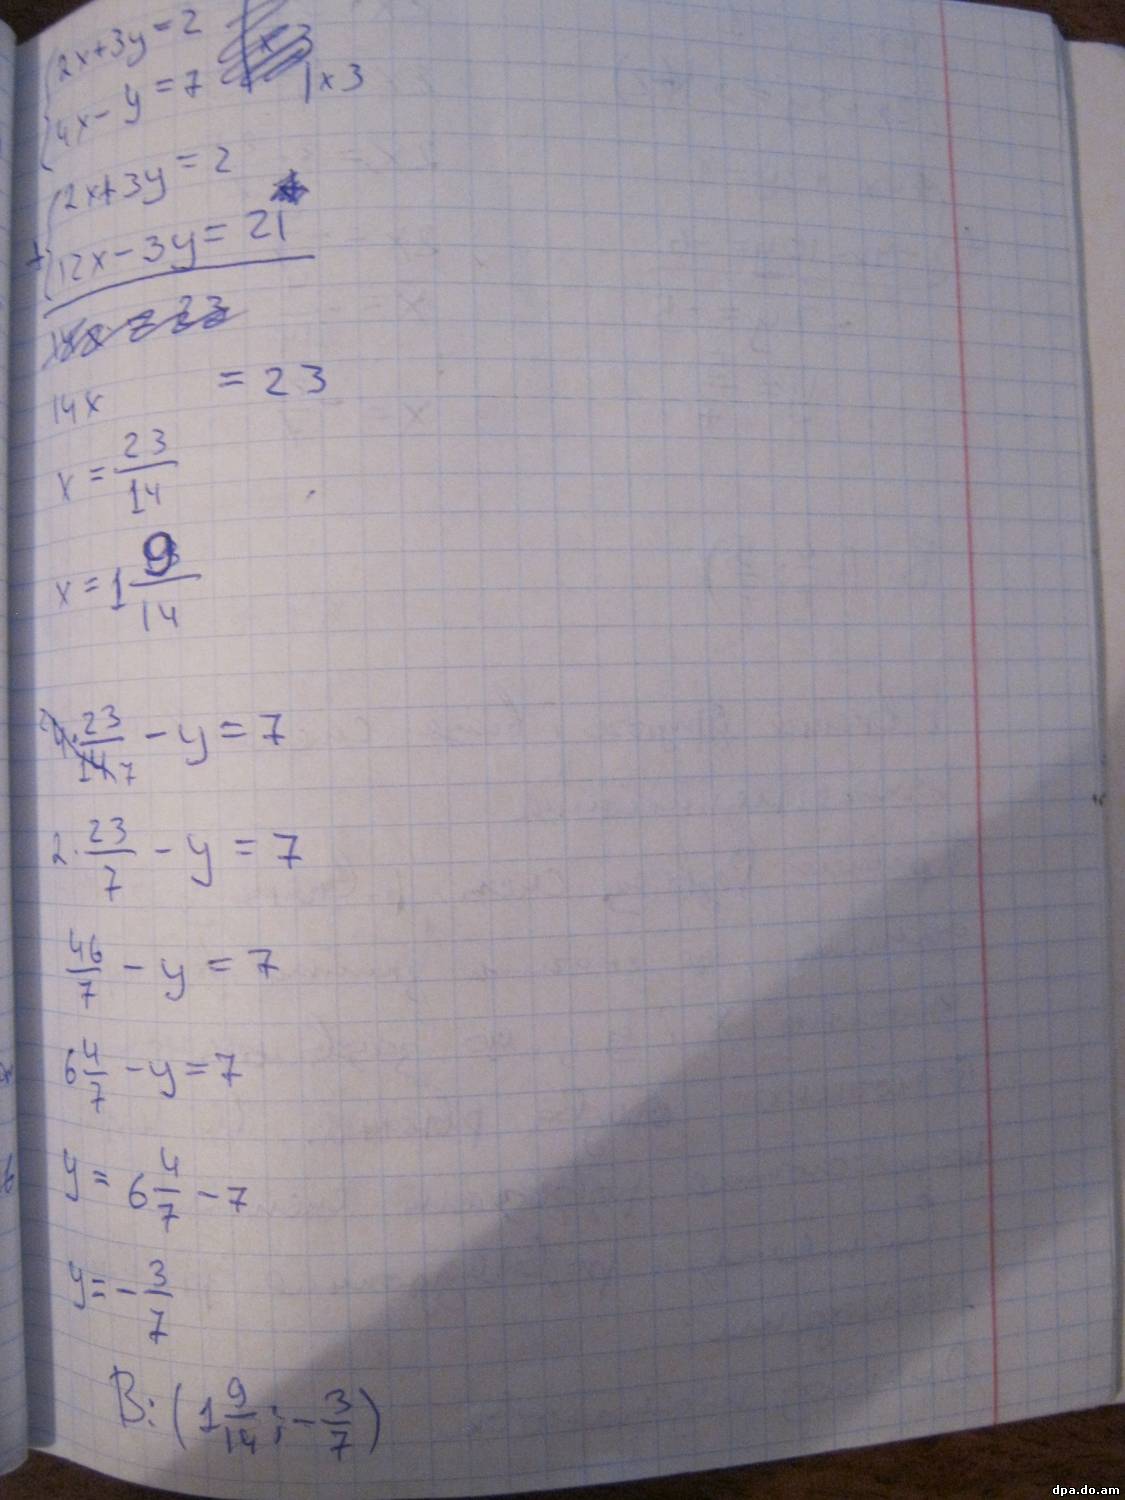 2x+3y=2
4x-y=7 |x3
2x+3y=2
12x-3y=21
14x = 23
x = 23/14
x = 1 9/14
4·23/14 - y = 7
2·23/7 - y = 7
46/7 - y = 7
6 4/7 - y = 7
y = 6 4/7 - 7
y = - 3/7
В: (1 9/14; - 3/7)
dpa.do.am